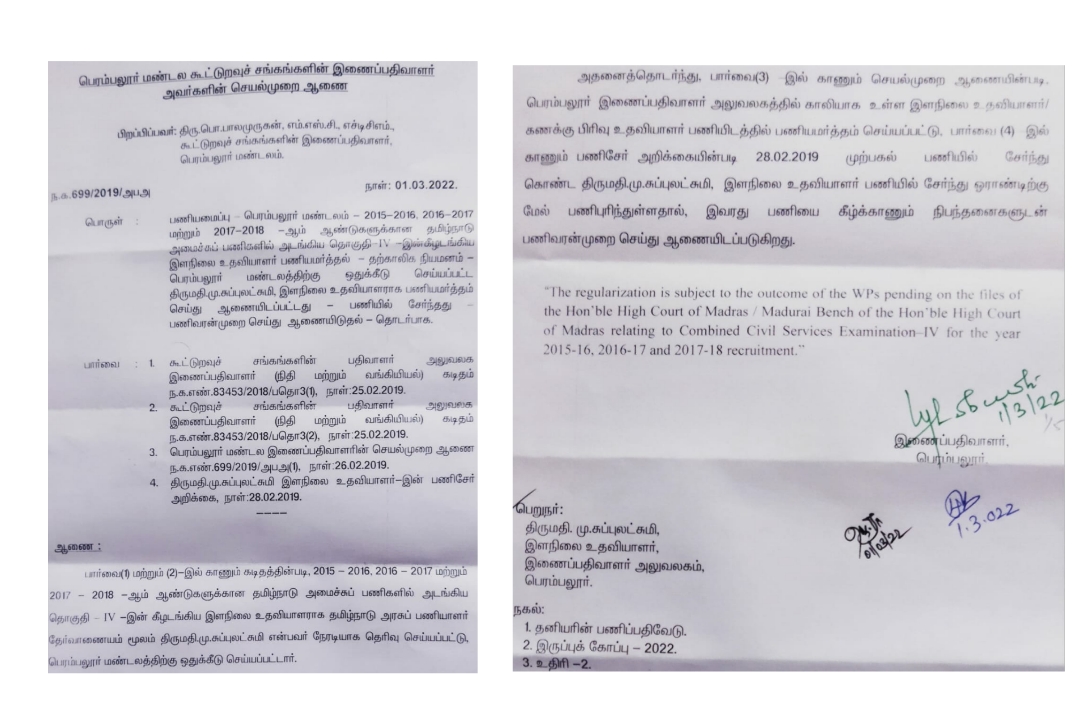 பெரம்பலூர் மண்டல கூட்டுறவுச் சங்கங்களின் இணைப்பதிவாளர்
அவர்களின் செயல்முறை ஆணை
பிறப்பிப்பவர்: திரு.பொ.பாலமுருகன், எம்.எஸ்.சி., எச்டிசிஎம்.,
கூட்டுறவுச் சங்கங்களின் இணைப்பதிவாளர்,
பெரம்பலூர் மண்டலம்.
ந.க.699/2019/அபஅ
நாள்: 01.03.2022.
பொருள் : பணியமைப்பு – பெரம்பலூர் மண்டலம் – 2015–2016, 2016–2017
மற்றும் 2017–2018 –ஆம் ஆண்டுகளுக்கான தமிழ்நாடு
அமைச்சுப் பணிகளில் அடங்கிய தொகுதி–IV –இன்கீழடங்கிய
இளநிலை உதவியாளர் பணியமர்த்தல் – தற்காலிக நியமனம் –
பெரம்பலூர் மண்டலத்திற்கு ஒதுக்கீடு செய்யப்பட்ட
திருமதி.மு.சுப்புலட்சுமி, இளநிலை உதவியாளராக பணியமர்த்தம்
செய்து ஆணையிடப்பட்டது – பணியில் சேர்ந்தது –
பணிவரன்முறை செய்து ஆணையிடுதல் – தொடர்பாக.
பார்வை : 1. கூட்டுறவுச் சங்கங்களின் பதிவாளர் அலுவலக
இணைப்பதிவாளர் (நிதி மற்றும் வங்கியியல்) கடிதம்
ந.க.எண்.83453/2018/பதொ3(1), நாள்:25.02.2019.
2. கூட்டுறவுச் சங்கங்களின் பதிவாளர் அலுவலக
இணைப்பதிவாளர் (நிதி மற்றும் வங்கியியல்) கடிதம்
ந.க.எண்.83453/2018/பதொ3(2), நாள்:25.02.2019.
3. பெரம்பலூர் மண்டல இணைப்பதிவாளரின் செயல்முறை ஆணை
ந.க.எண்.699/2019/அபஅ(1), நாள்:26.02.2019.
4. திருமதி.மு.சுப்புலட்சுமி இளநிலை உதவியாளர்–இன் பணிசேர்
அறிக்கை, நாள்:28.02.2019.
––––
ஆணை :
பார்வை(1) மற்றும் (2)–இல் காணும் கடிதத்தின்படி, 2015 – 2016, 2016 – 2017 மற்றும்
2017 – 2018 –ஆம் ஆண்டுகளுக்கான தமிழ்நாடு அமைச்சுப் பணிகளில் அடங்கிய
தொகுதி – IV –இன் கீழடங்கிய இளநிலை உதவியாளராக தமிழ்நாடு அரசுப் பணியாளர்
தேர்வாணையம் மூலம் திருமதி.மு.சுப்புலட்சுமி என்பவர் நேரடியாக தெரிவு செய்யப்பட்டு,
பெரம்பலூர் மண்டலத்திற்கு ஒதுக்கீடு செய்யப்பட்டார்.
அதனைத்தொடர்ந்து, பார்வை(3) –இல் காணும் செயல்முறை ஆணையின்படி,
பெரம்பலூர் இணைப்பதிவாளர் அலுவலகத்தில் காலியாக உள்ள இளநிலை உதவியாளர்/
கணக்கு பிரிவு உதவியாளர் பணியிடத்தில் பணியமர்த்தம் செய்யப்பட்டு, பார்வை (4) –இல்
காணும் பணிசேர் அறிக்கையின்படி 28.02.2019 முற்பகல் பணியில் சேர்ந்து
கொண்ட திருமதி.மு.சுப்புலட்சுமி, இளநிலை உதவியாளர் பணியில் சேர்ந்து ஓராண்டிற்கு
மேல் பணிபுரிந்துள்ளதால், இவரது பணியை கீழ்க்காணும் நிபந்தனைகளுடன்
பணிவரன்முறை செய்து ஆணையிடப்படுகிறது.
"The regularization is subject to the outcome of the WPs pending on the files of
the Hon'ble High Court of Madras / Madurai Bench of the Hon'ble High Court
of Madras relating to Combined Civil Services Examination–IV for the year
2015-16, 2016-17 and 2017-18 recruitment."
1/3/22
இணைப்பதிவாளர்,
பெரம்பலூர்.
பெறுநர்:
திருமதி. மு.சுப்புலட்சுமி,
இளநிலை உதவியாளர்,
இணைப்பதிவாளர் அலுவலகம்,
பெரம்பலூர்.
01/03/22
1.3.022
நகல்:
1. தனியரின் பணிப்பதிவேடு.
2. இருப்புக் கோப்பு – 2022.
3. உதிரி –2.